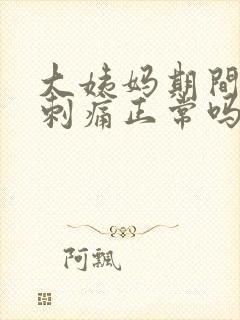 大姨妈期间
刺痛正常吗
阿飘